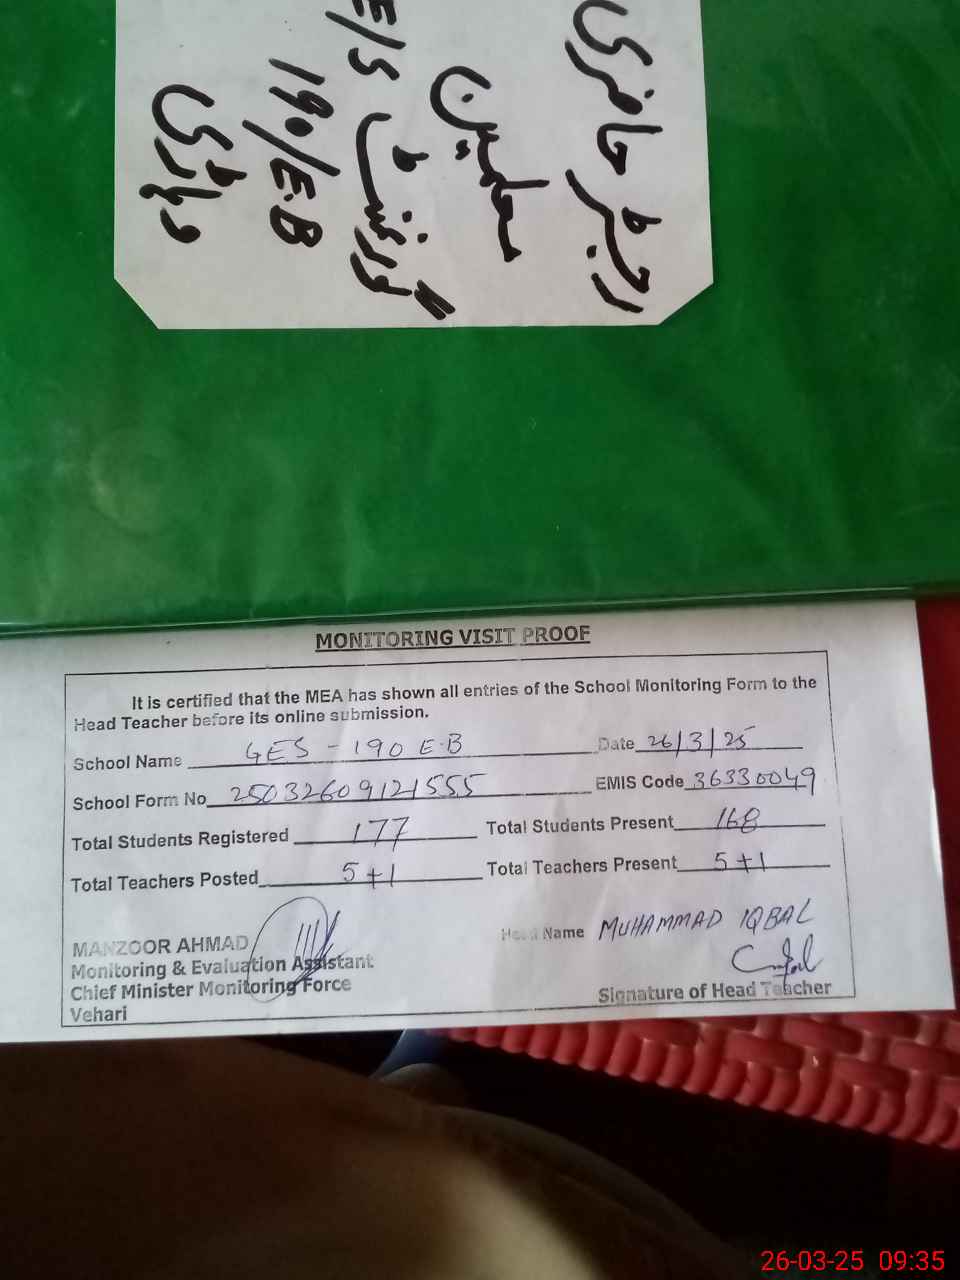 رجسٹر حاضری
معلمین
گورنمنٹ E/S
190/E.B
وہاڑی
MONITORING VISIT PROOF
It is certified that the MEA has shown all entries of the School Monitoring Form to the
Head Teacher before its online submission.
School Name GES - 190 E.B Date 26/3/25
School Form No 25032609121555 EMIS Code 36330049
Total Students Registered 177 Total Students Present 168
Total Teachers Posted 5+1 Total Teachers Present 5+1
MANZOOR AHMAD Head Name MUHAMMAD IQBAL
Monitoring & Evaluation Assistant
Chief Minister Monitoring Force Signature of Head Teacher
Vehari
26-03-25 09:35